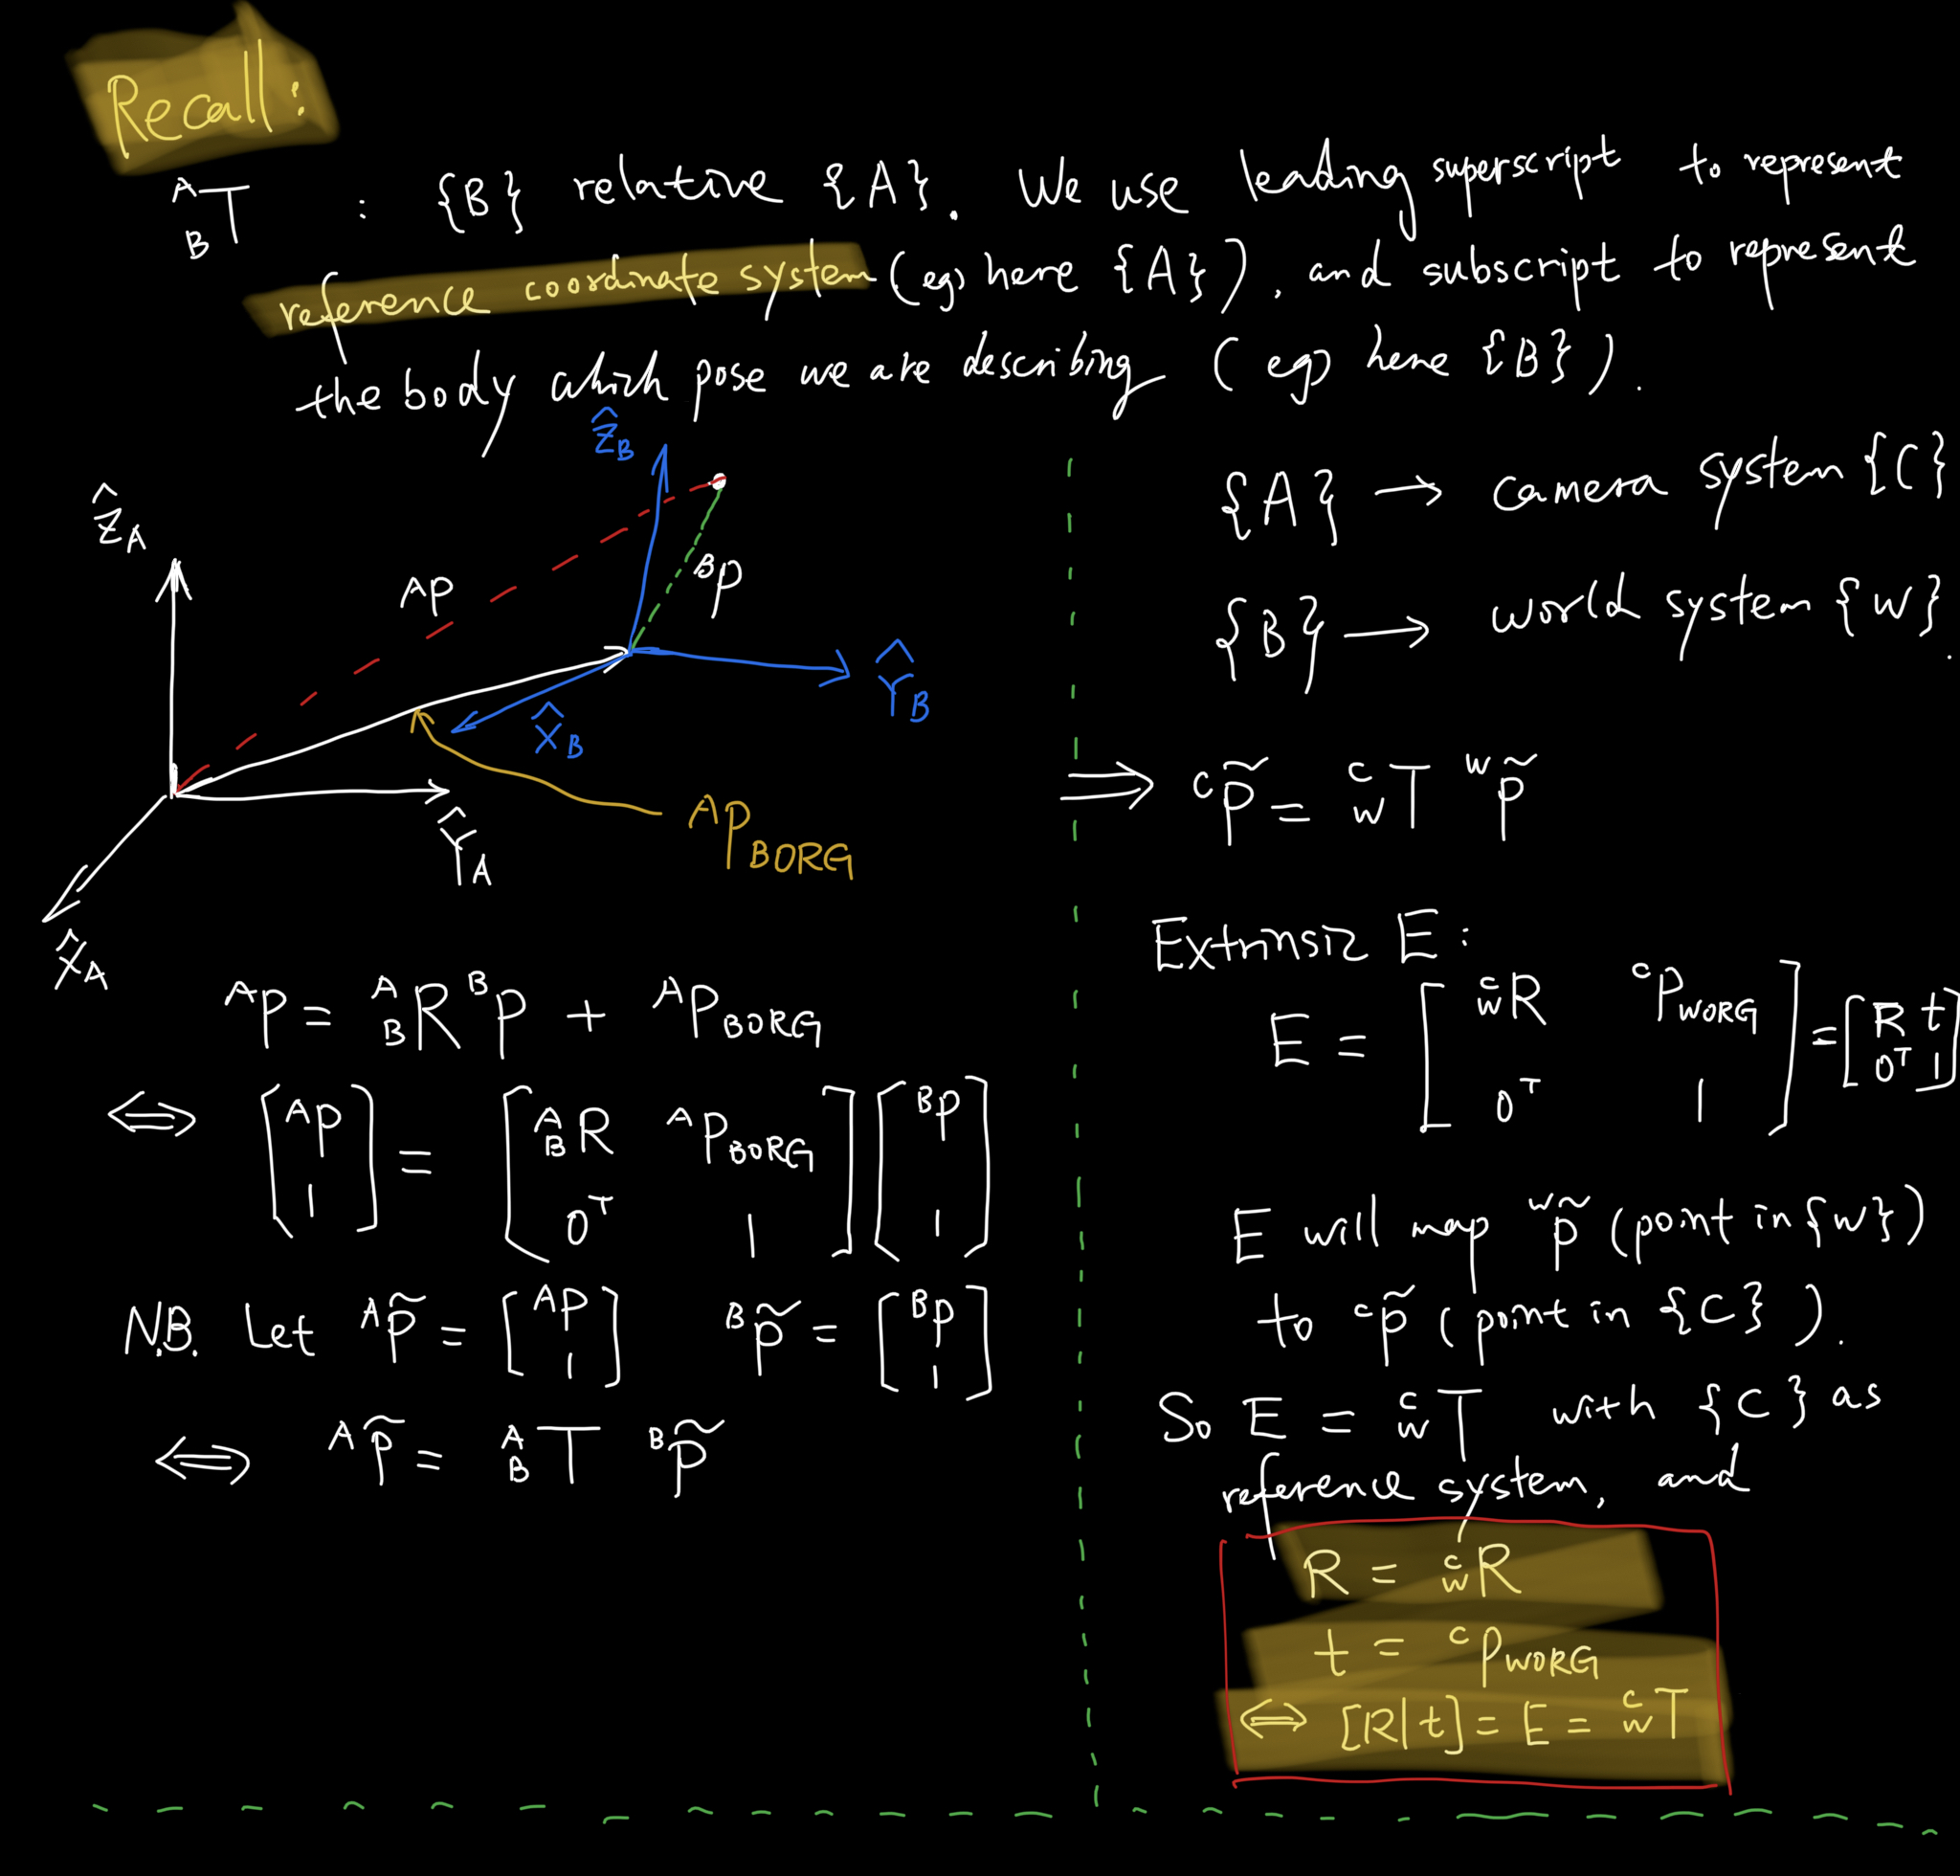 Recall:
ᴬ_B T : {B} relative {A}. We use leading superscript to represent
reference coordinate system (eg) here {A}), and subscript to represent
the body which pose we are describing (eg) here {B}).
Ẑ_B
Ẑ_A
ᴬP
ᴮP
Ŷ_B
X̂_B
ᴬP_BORG
Ŷ_A
X̂_A
ᴬP = ᴬ_B R ᴮP + ᴬP_BORG
⇔ [ᴬP 1] = [ᴬ_B R ᴬP_BORG 0ᵀ 1] [ᴮP 1]
N.B. Let ᴬp̃ = [ᴬP 1] ᴮp̃ = [ᴮP 1]
⇔ ᴬp̃ = ᴬ_B T ᴮp̃
{A} → camera system {C}
{B} → world system {W}.
⇒ ᶜp̃ = ᶜ_W T ᵂp̃
Extrinsic E:
E = [ᶜ_W R ᶜP_WORG 0ᵀ 1] = [R t 0ᵀ 1]
E will map ᵂp̃ (point in {W})
to ᶜp̃ (point in {C}).
So E = ᶜ_W T with {C} as
reference system, and
R = ᶜ_W R
t = ᶜP_WORG
⇔ [R|t] = E = ᶜ_W T